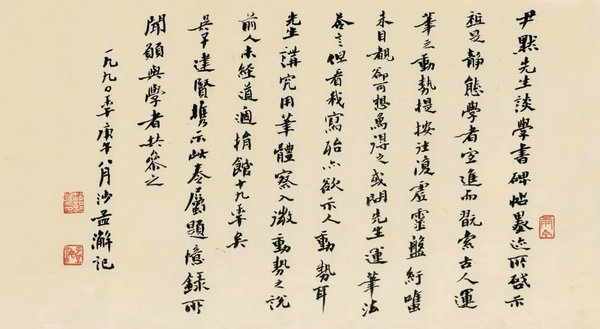 尹默先生談學書碑帖墨迹所啟示
祗是靜態學者宜進而翫索古人運
筆之動勢提按往復虛靈盤紆雖
未目覩卻可想爲得之或問先生運筆法
答言但看我寫殆亦欲示人動勢耳
先生講究用筆體察入微動勢之說
前人未經道過捐館十九年矣
吳子達賢攜示此卷屬題憶錄所
聞願與學者共參之
一九九〇年庚午八月沙孟澥記